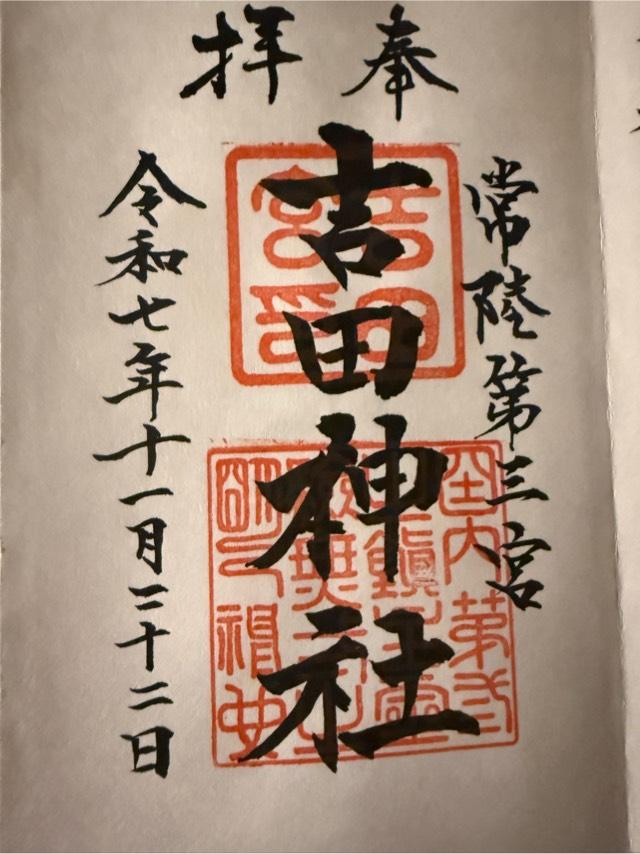 奉拝
常陸第三宮
吉田神社
令和七年十一月二十二日
吉田
宮印